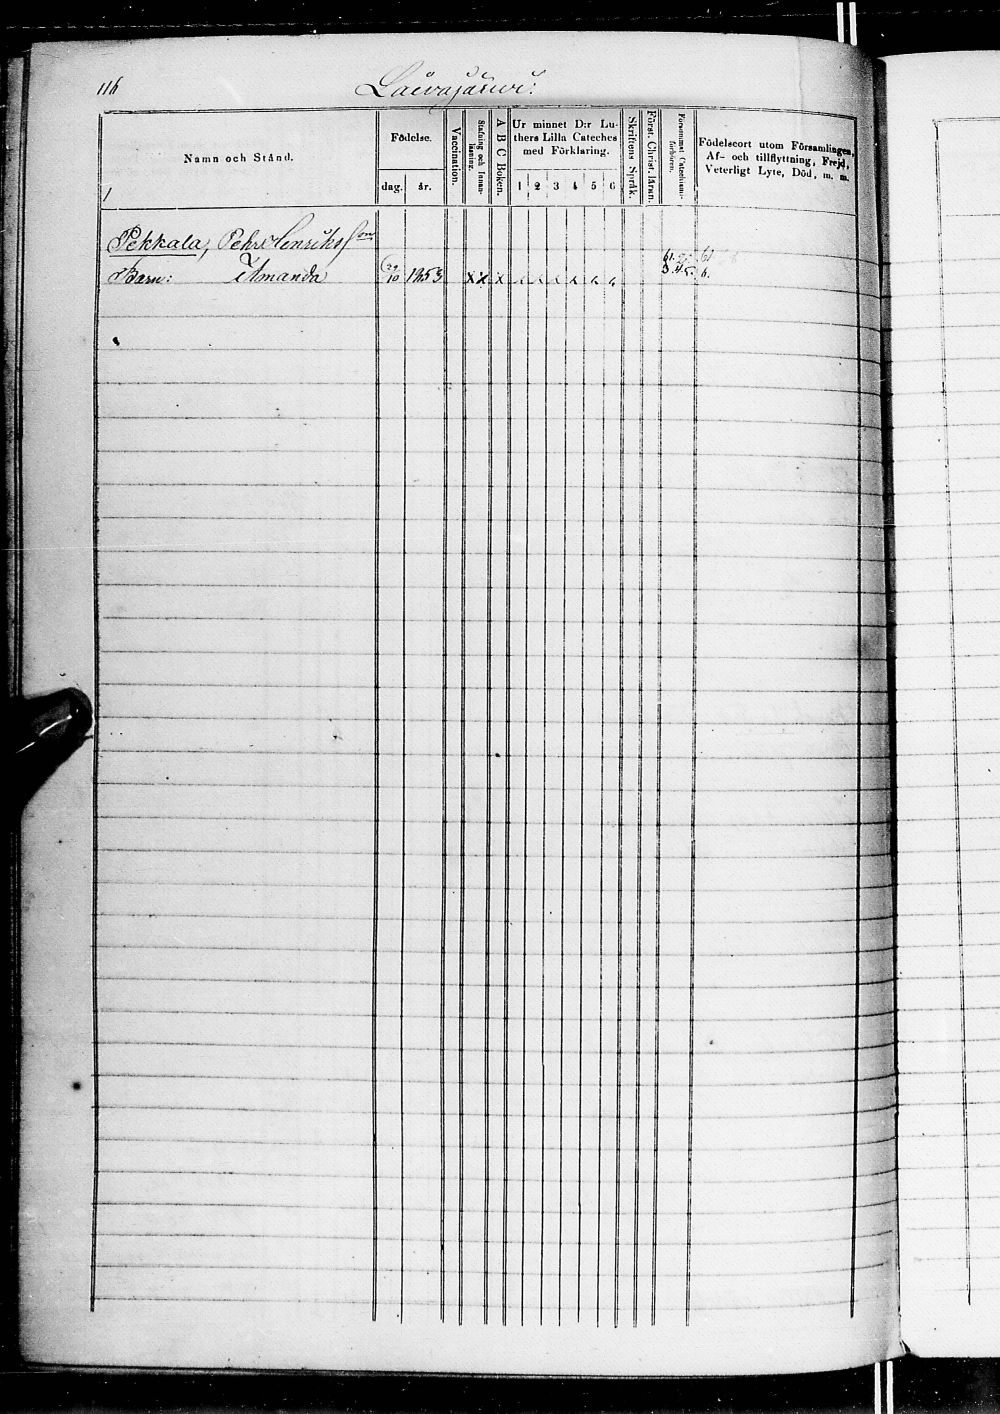 116
Laivajärvi:
Namn och Stånd.
Födelse.
dag. år.
Vaccination.
Stafning och Innan-
läsning.
A B C Boken.
Ur minnet D:r Lu-
thers Lilla Cateches
med Förklaring.
1 2 3 4 5 6
Skriftens Språk.
Först. Christ. läran.
Försummat Catechismi-
förhören.
Födelseort utom Församlingen,
Af- och tillflyttning, Frejd,
Veterligt Lyte, Död, m. m.
Pekkala, Pehr Henriksson
Barn: Amanda 29/10 1853 x x x x x x x x x